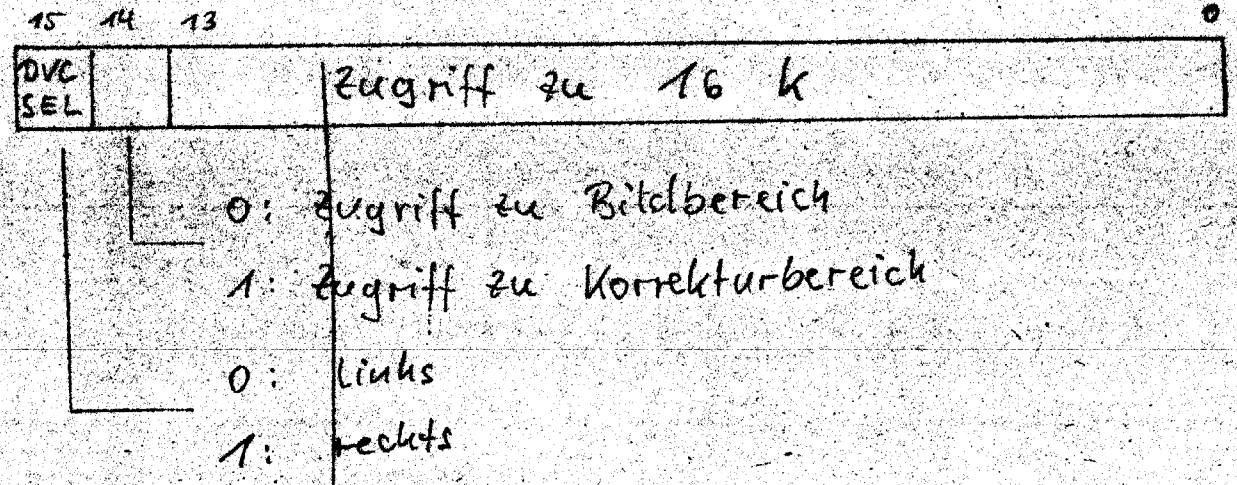 15 14 13 0
DVC
SEL
Zugriff zu 16 k
0: Zugriff zu Bildbereich
1: Zugriff zu Korrekturbereich
0: links
1: rechts